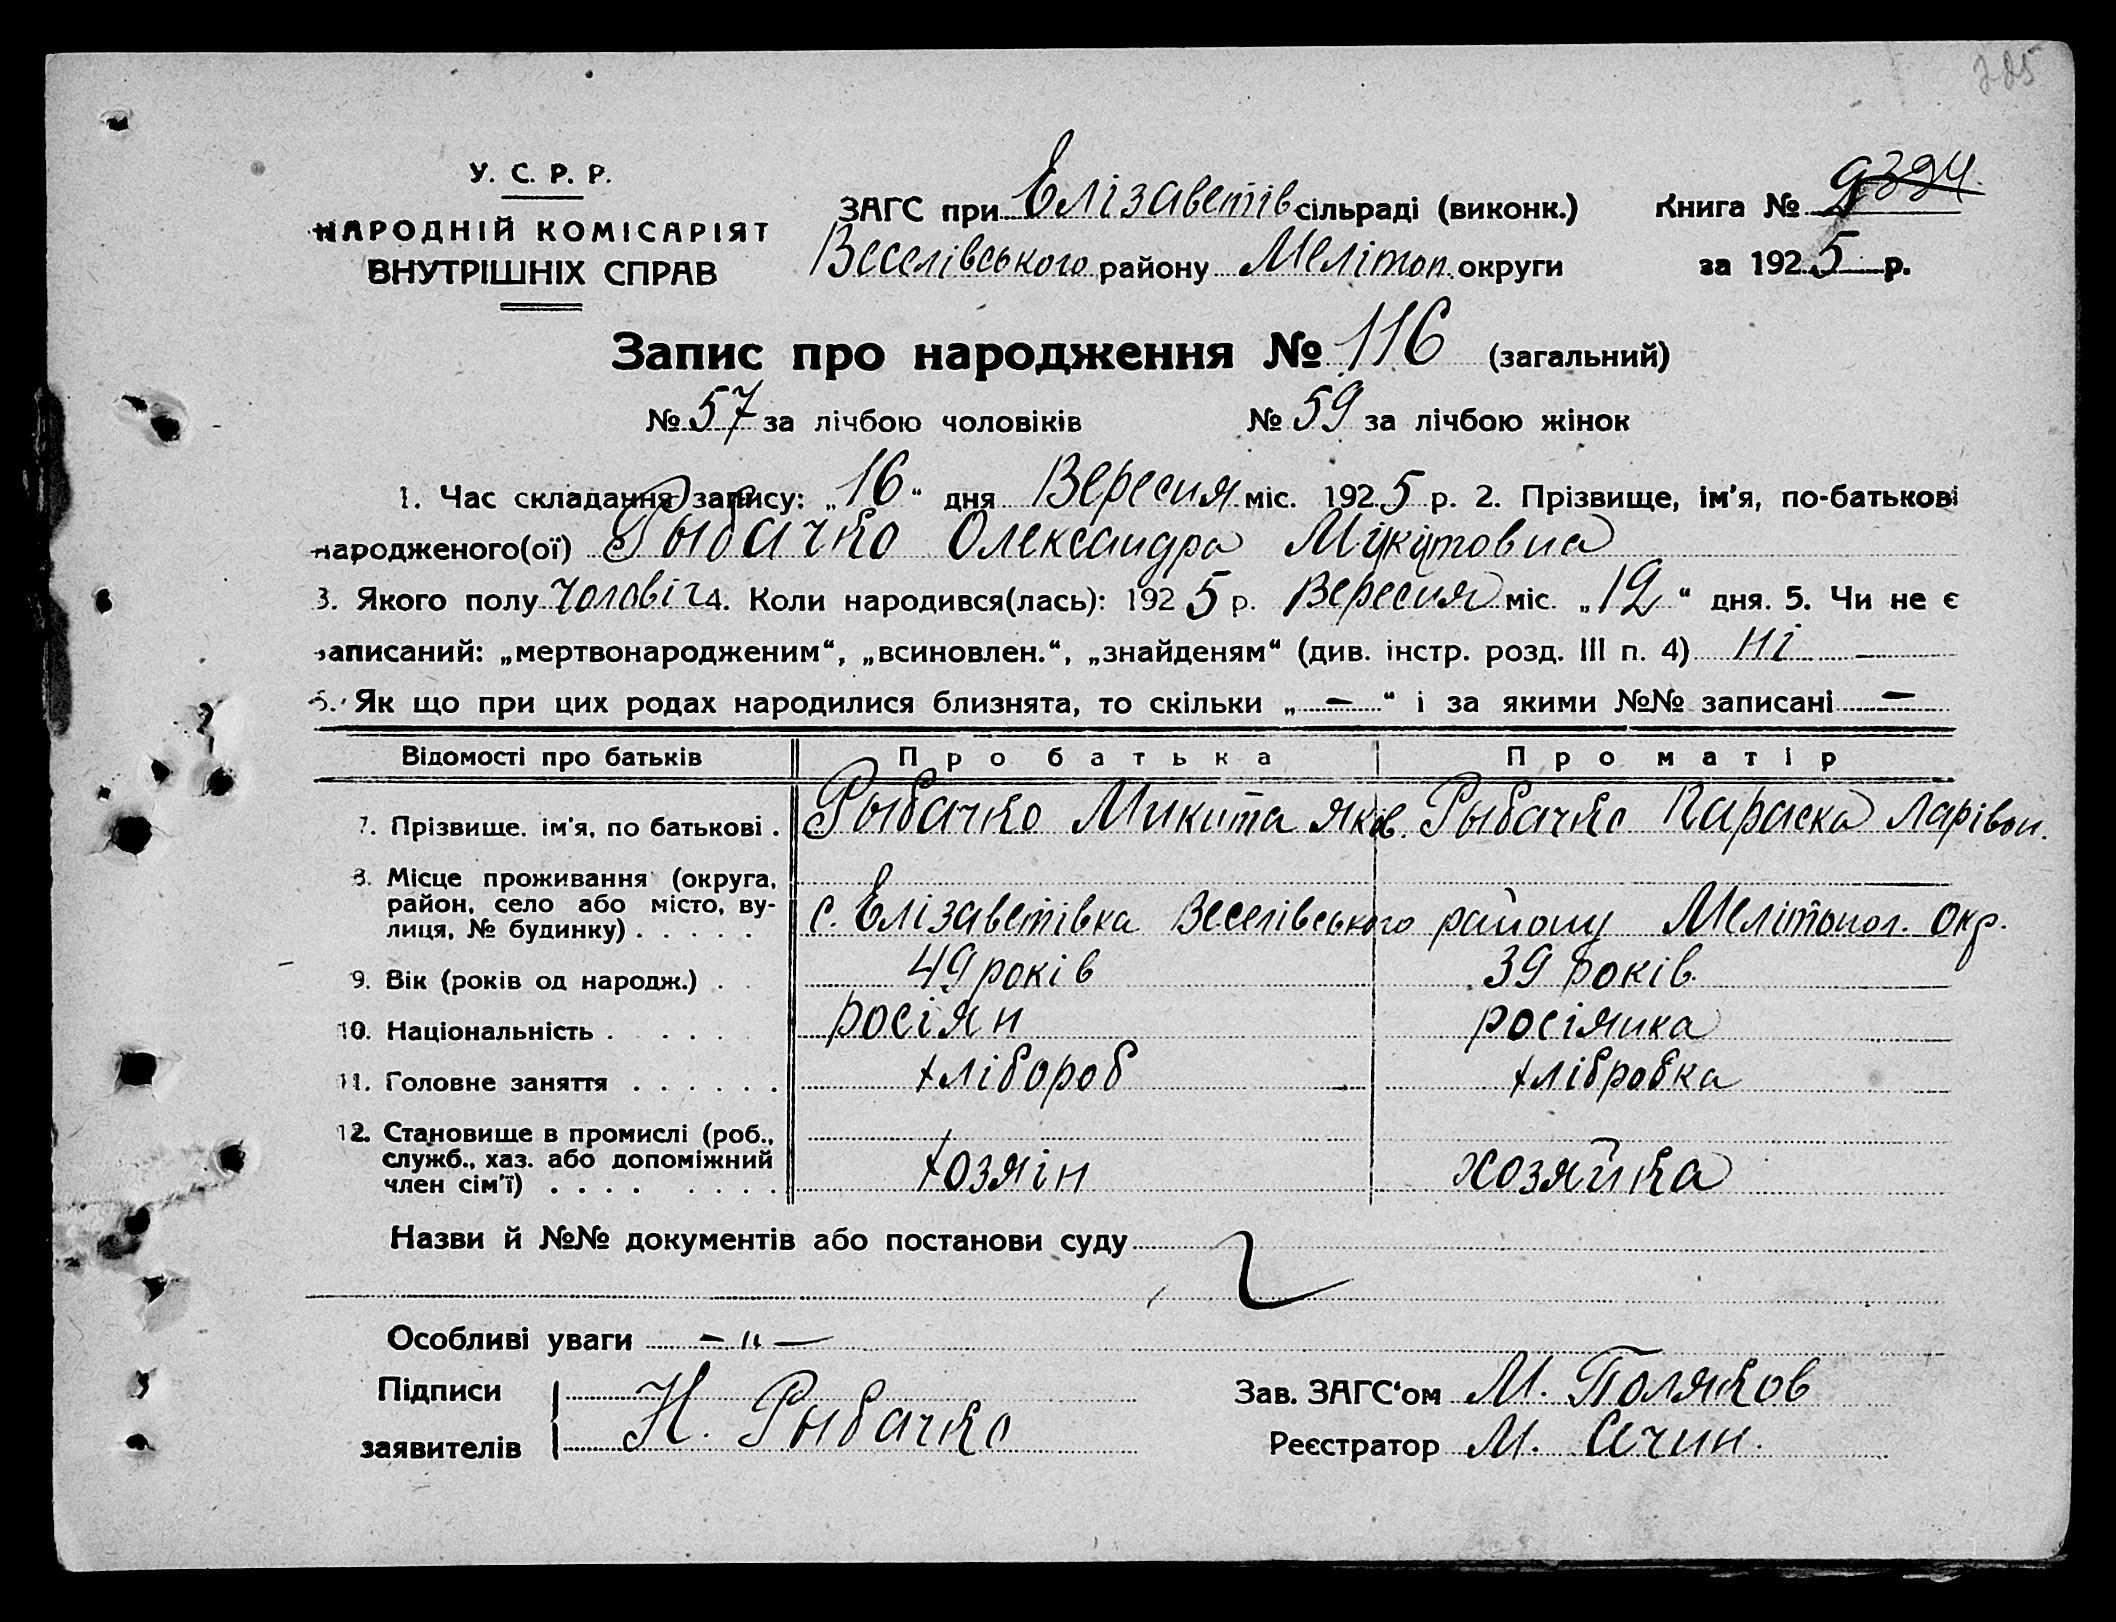 385
У. С. Р. Р.
НАРОДНІЙ КОМІСАРІЯТ
ВНУТРІШНІХ СПРАВ
ЗАГС при Елізаветів сільраді (виконк.)
Веселівського району Мелітоп. округи
Книга №
за 1925 р.
Запис про народження № 116 (загальний)
№ 57 за лічбою чоловіків № 59 за лічбою жінок
1. Час складання запису: „16“ дня Вересня міс. 1925 р. 2. Прізвище, ім'я, по-батькові
народженого(ої) Рыбачко Олександра Микитовна
3. Якого полу чоловіч 4. Коли народився(лась): 1925 р. Вересня міс. „12“ дня. 5. Чи не є
записаний: „мертвонародженим“, „всиновлен.“, „знайденям“ (див. інстр. розд. III п. 4) ні —
6. Як що при цих родах народилися близнята, то скільки „—“ і за якими №№ записані —
Відомості про батьків Про батька Про матір
7. Прізвище, ім'я, по батькові . Рыбачко Микита Яков. Рыбачко Параска Ларівон.
8. Місце проживання (округа,
район, село або місто, ву-
лиця, № будинку) . . . . . с. Елізаветівка Веселівського району Мелітопол. окр.
9. Вік (років од народж.) . . 49 років 39 років
10. Національність . . . . . росіян росіянка
11. Головне заняття . . . . . . хлібороб хлібробка
12. Становище в промислі (роб.,
служб., хаз. або допоміжний
член сім'ї) . . . . . . . . хозяін хозяйка
Назви й №№ документів або постанови суду
Особливі уваги — „ —
Підписи
заявителів Н. Рыбачко
Зав. ЗАГС'ом М. Поляков
Реєстратор М.